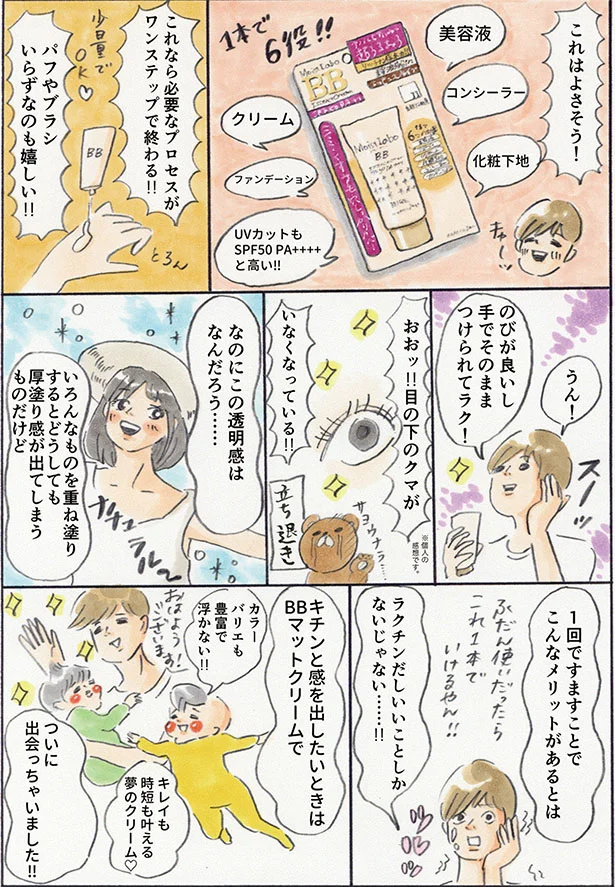 これはよさそう!
1本で
6役!!
美容液
コンシーラー
化粧下地
クリーム
ファンデーション
UVカットも
SPF50 PA++++
と高い!!
Moist Labo
BB
Moist Labo
BB
これなら必要なプロセスが
ワンステップで終わる!!
少量で
OK♡
BB
パフやブラシ
いらずなのも
嬉しい!!
とろん
うん!
のびが良いし
手でそのまま
つけられてラク!
スーッ
おおッ!!目の下のクマが
いなくなっている!!
サヨウナラ…
立ち退き
※個人の
感想です。
なのにこの透明感は
なんだろう……
いろんなものを重ね塗り
するとどうしても
厚塗り感が出てしまう
ものだけど
ナチュラルー
1回ですますことで
こんなメリットがあるとは
ふだん使いだったら
これ1本で
いけるやん!!
ラクチンだしいいことしか
ないじゃない……!!
キチンと感を出したいときは
BBマットクリームで
カラー
バリエも
豊富で
浮かない!!
おはよう!
ございます!
キレイも
時短も叶える
夢のクリーム♡
ついに
出会っちゃいました!!